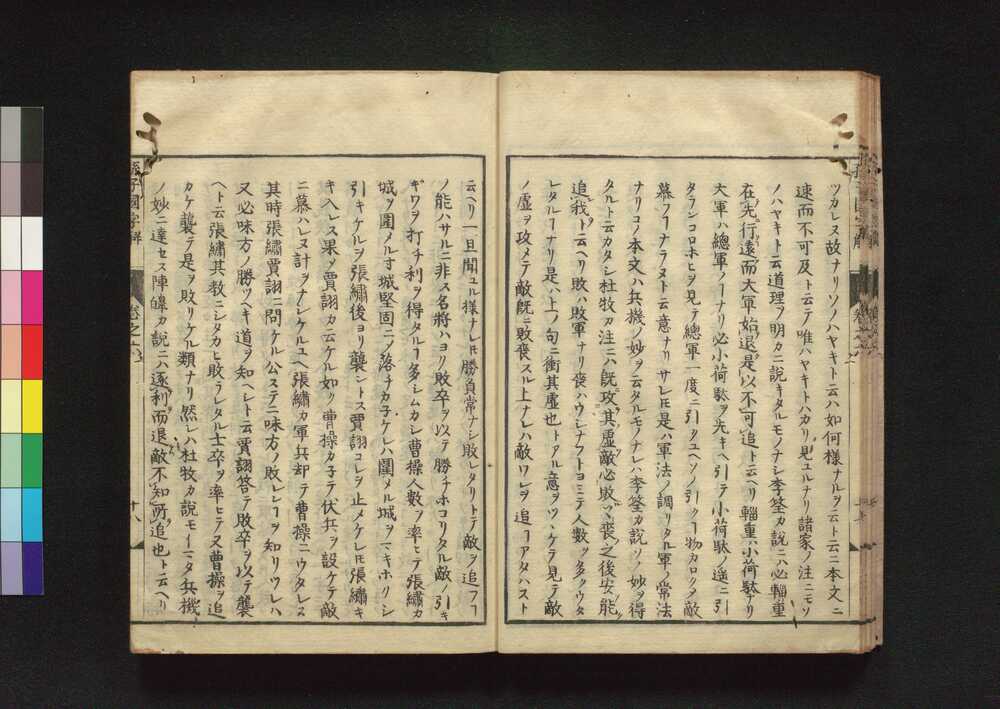 ツカレス故ナリソノハヤキト云ハ如何様ナルヲ云ト云ニ本文ニ
速而不可及ト云テ唯ハヤキトハカリ見ユルナリ諸家ノ注ニモソ
ノハヤキト云道理ヲ明カニ説キタルモノナシ李筌カ説ニハ必輜重
在先行遠而大軍始退是以不可追ト云ヘリ輜重ハ小荷駄ナリ
大軍ハ總軍ノヿナリ必小荷駄ヲ先キヘ引テ小荷駄ノ遥ニ引
タランコロホヒヲ見テ總軍一度ニ引クユヘソノ引クヿ物カロクタ敵
慕フヿナラヌト云意ナリサレ𪜈是ハ軍法ノ調リタル軍ノ常法
ナリコノ本文ハ兵機ノ妙ヲ云タルモノナレハ李筌カ説ソノ妙ヲ得
タルト云カタシ杜牧カ注ニハ既攻其虚敵必敗喪之後安能
追我ト云ヘリ敗ハ敗軍ナリ喪ハウシナフトヨミテ人数ヲ多クウタ
レタルヿナリ是ハ上ノ句ニ衝其虚也トアル意ヲツヽケテ見テ敵
ノ虚ヲ攻メテ敵既ニ敗喪スル上ナレハ敵ワレヲ追フヿアタハスト
云ヘリ一旦聞ユル様ナレ𪜈勝負常ナシ敗レタリトテ敵ヲ追フヿ
ノ能ハサルニ非ス名将ハヨリ敗卒ヲ以テ勝チホコリタル敵ノ引キ
ギワヲ打チ利ヲ得タルヿ多シムカシ曹操人数ヲ率ヒテ張繍カ
城ヲ圍メル𪜈城堅固ニノ落チカ子ケレハ圍メル城ヲマキホクシ
引キケルヲ張繍後ヨリ襲ントス賈詡コレヲ止メケレ𪜈張繍キ
キ入レス果ノ賈詡カ云ケル如ク曹操カ子テ伏兵ヲ設ケテ敵
ニ慕ハレヌ計ヲナシケルユヘ張繍カ軍兵却テ曹操ニウタレス
其時張繍賈詡ニ問ケル公ステニ味方ノ敗レンヿヲ知リウレハ
又必味方ノ勝ツヘキ道ヲ知ヘレト云賈詡答テ敗卒ヲ以テ襲
ヘト云張繍其教ニシタカヒ敗ラレタル士卒ヲ率ヒテ又曹操ヲ追
カケ襲テ是ヲ敗リケル類ナリ然レハ杜牧カ説モイマタ兵機
ノ妙ニ達セス陣皥カ説ニハ逐利而退敵不知所追也ト云ヘリ
孫子國字解
巻之六
十八